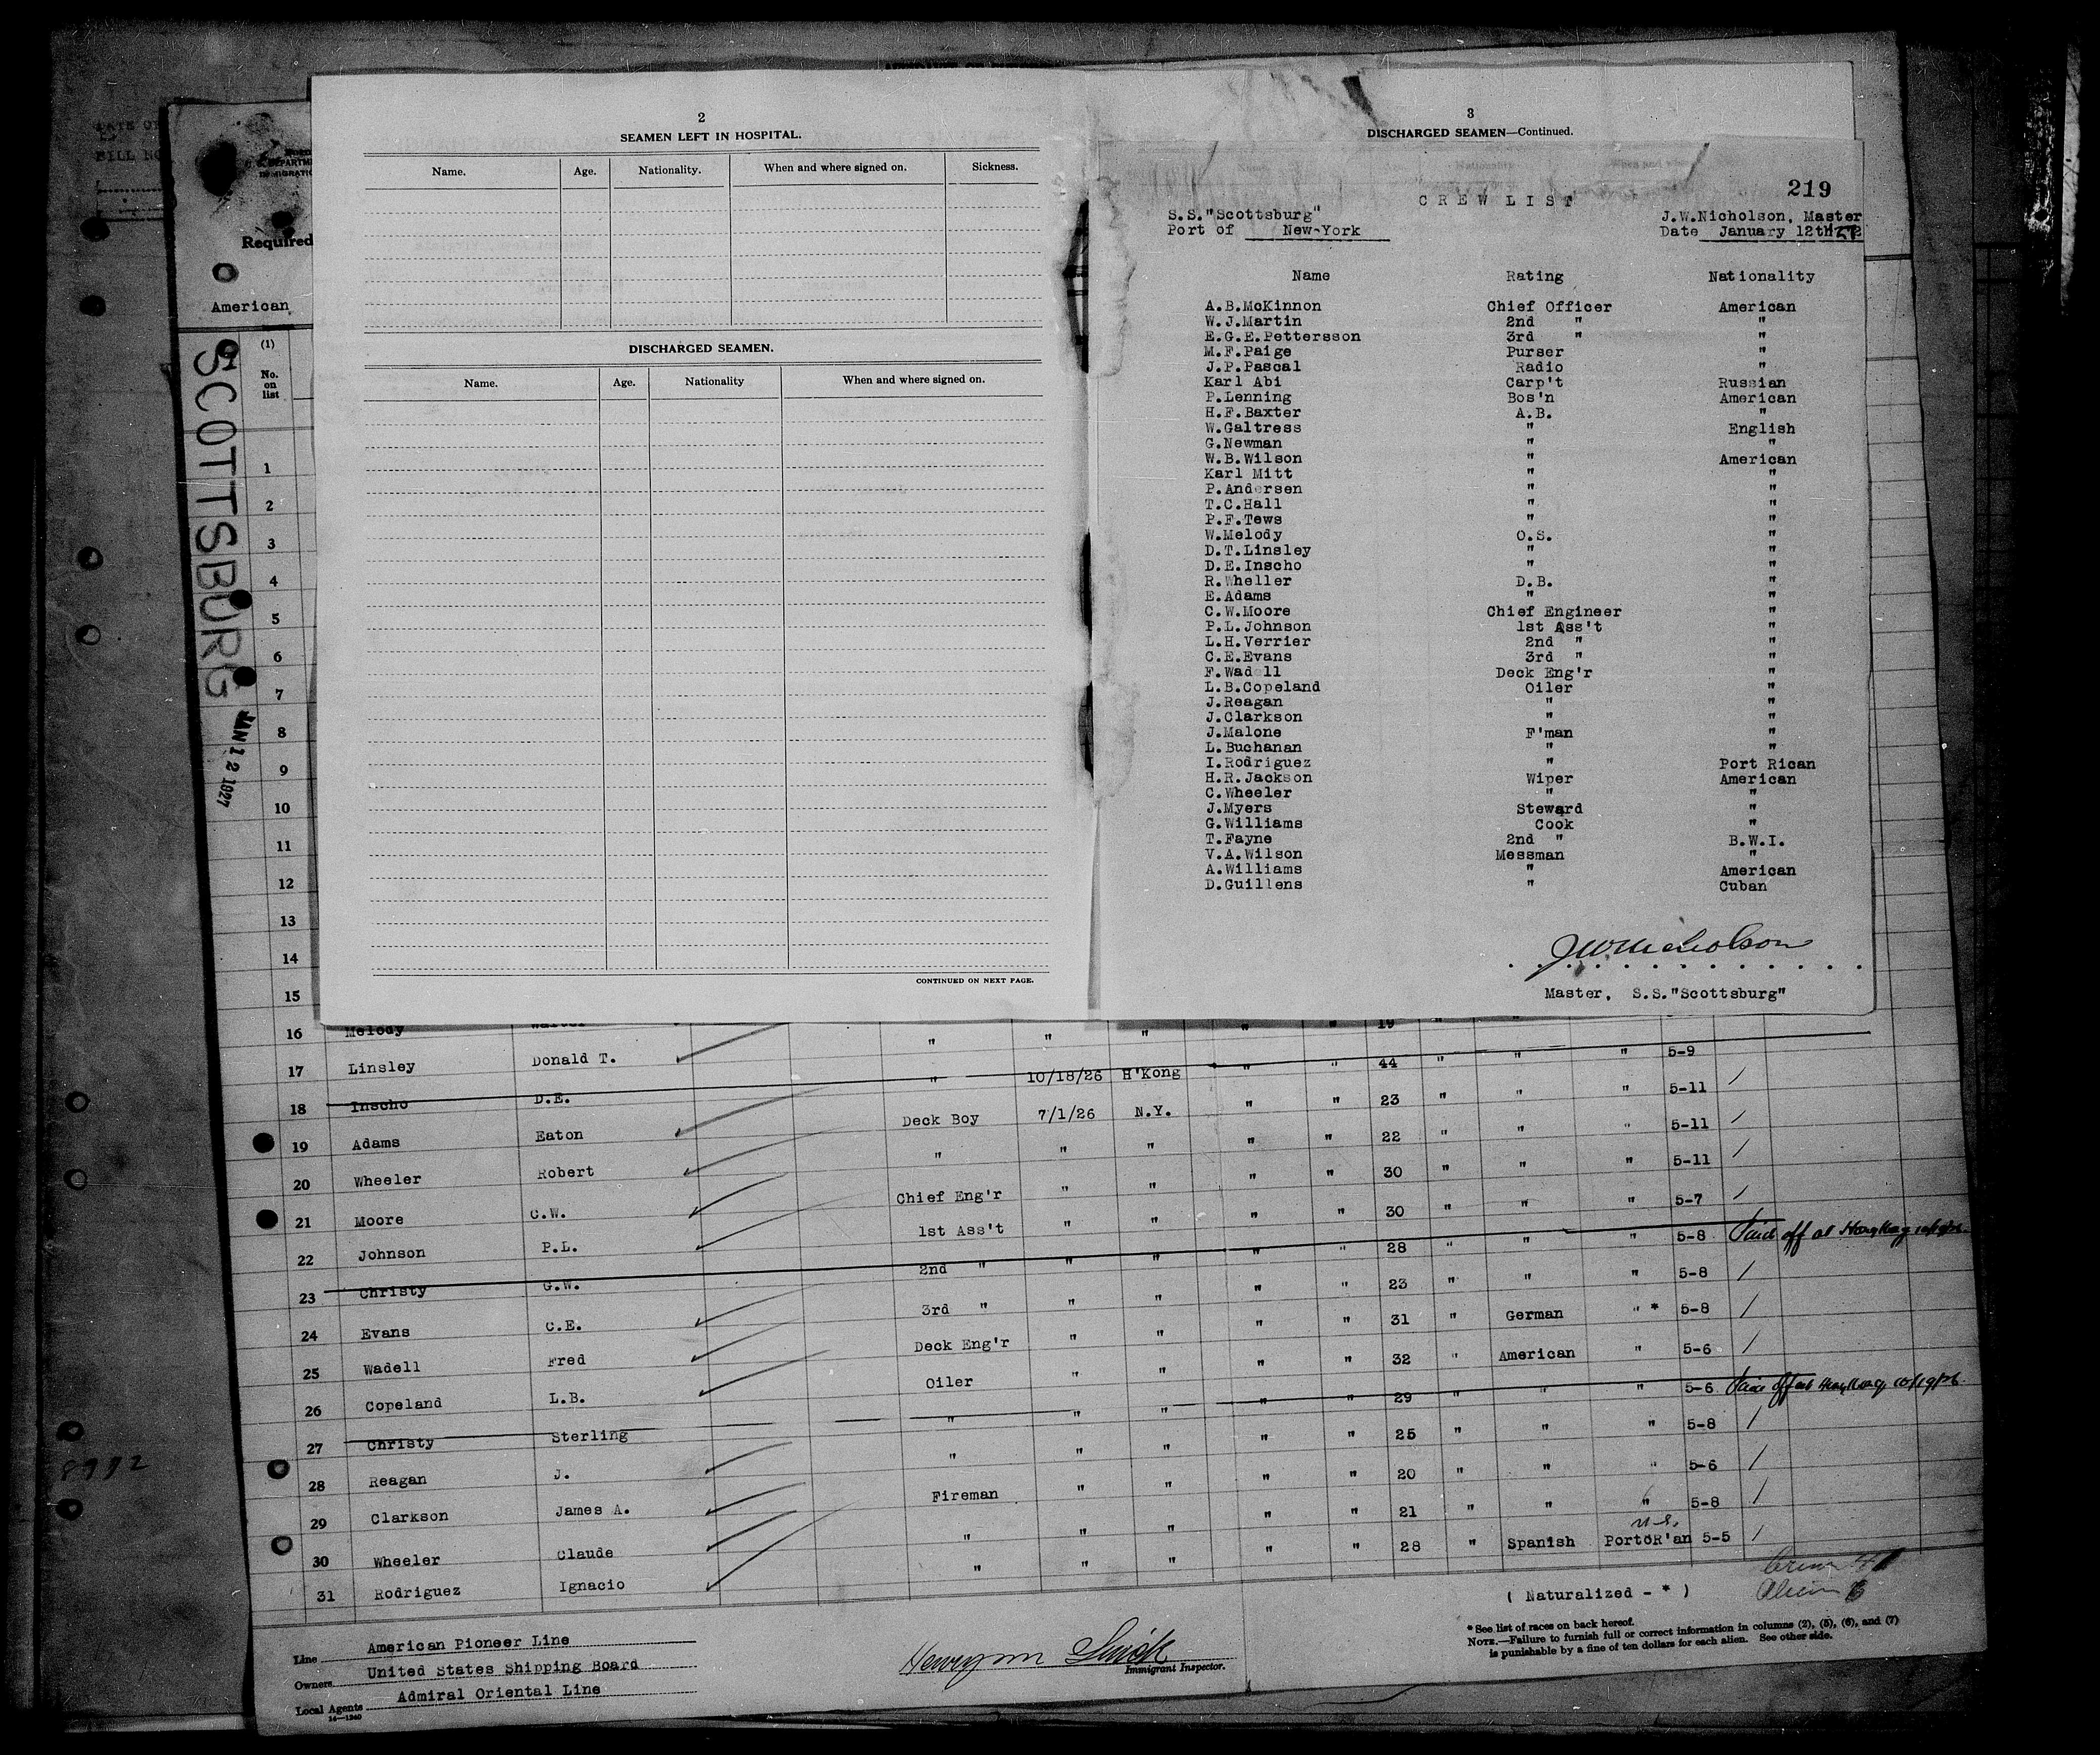 DATE OF
BILL NO
Required
American
(1)
No.
on
list
SCOTTSBURG
JAN 12 1927
1
2
3
4
5
6
7
8
9
10
11
12
13
14
15
2
SEAMEN LEFT IN HOSPITAL.
Name. Age. Nationality. When and where signed on. Sickness.
DISCHARGED SEAMEN.
Name. Age. Nationality When and where signed on.
CONTINUED ON NEXT PAGE.
3
DISCHARGED SEAMEN—Continued.
219
CREW LIST
S.S."Scottsburg" J.W.Nicholson, Master
Port of New-York Date January 12th
Name Rating Nationality
A.B.McKinnon Chief Officer American
W.J.Martin 2nd " "
E.G.E.Pettersson 3rd " "
M.F.Paige Purser "
J.P.Pascal Radio "
Karl Abi Carp't Russian
P.Lenning Bos'n American
H.F.Baxter A.B. "
W.Galtress " English
G.Newman " "
W.B.Wilson " American
Karl Mitt " "
P.Andersen " "
T.C.Hall " "
P.F.Tews " "
W.Melody O.S. "
D.T.Linsley " "
D.E.Inscho " "
R.Wheller D.B. "
E.Adams " "
C.W.Moore Chief Engineer "
P.L.Johnson 1st Ass't "
L.H.Verrier 2nd " "
C.E.Evans 3rd " "
F.Wadell Deck Eng'r "
L.B.Copeland Oiler "
J.Reagan " "
J.Clarkson " "
J.Malone F'man "
L.Buchanan " "
I.Rodriguez " Port Rican
H.R.Jackson Wiper American
C.Wheeler " "
J.Myers Steward "
G.Williams Cook "
T.Fayne 2nd " B.W.I.
V.A.Wilson Messman "
A.Williams " American
D.Guillens " Cuban
JWNicholson
Master, S.S."Scottsburg"
16 Melody Walter " " " " " 19 "
17 Linsley Donald T. " 10/18/26 H'Kong " " 44 " " " 5-9
18 Inscho D.E. Deck Boy 7/1/26 N.Y. " " 23 " " " 5-11 /
19 Adams Eaton " " " " " 22 " " " 5-11 /
20 Wheeler Robert Chief Eng'r " " " " 30 " " " 5-11 /
21 Moore C.W. 1st Ass't " " " " 30 " " " 5-7 /
22 Johnson P.L. 2nd " " " " " 28 " " " 5-8 Paid off at Hong Kong
23 Christy G.W. 3rd " " " " " 23 " " " 5-8 /
24 Evans C.E. Deck Eng'r " " " " 31 " German " * 5-8 /
25 Wadell Fred Oiler " " " " 32 " American " 5-6 /
26 Copeland L.B. " " " " " 29 " " " 5-6 Paid off at Hong Kong 10/19/26
27 Christy Sterling " " " " " 25 " " " 5-8 /
28 Reagan J. Fireman " " " " 20 " " " 5-6 /
29 Clarkson James A. " " " " " 21 " " " 5-8 /
30 Wheeler Claude " " " " " 28 " Spanish U.S. PortoR'an 5-5 /
31 Rodriguez Ignacio
( Naturalized - * )
Crew
Alien
* See list of races on back hereof.
NOTE.—Failure to furnish full or correct information in columns (2), (5), (6), and (7)
is punishable by a fine of ten dollars for each alien. See other side.
Line American Pioneer Line
Owners United States Shipping Board
Local Agents Admiral Oriental Line
14—1940
Immigrant Inspector.